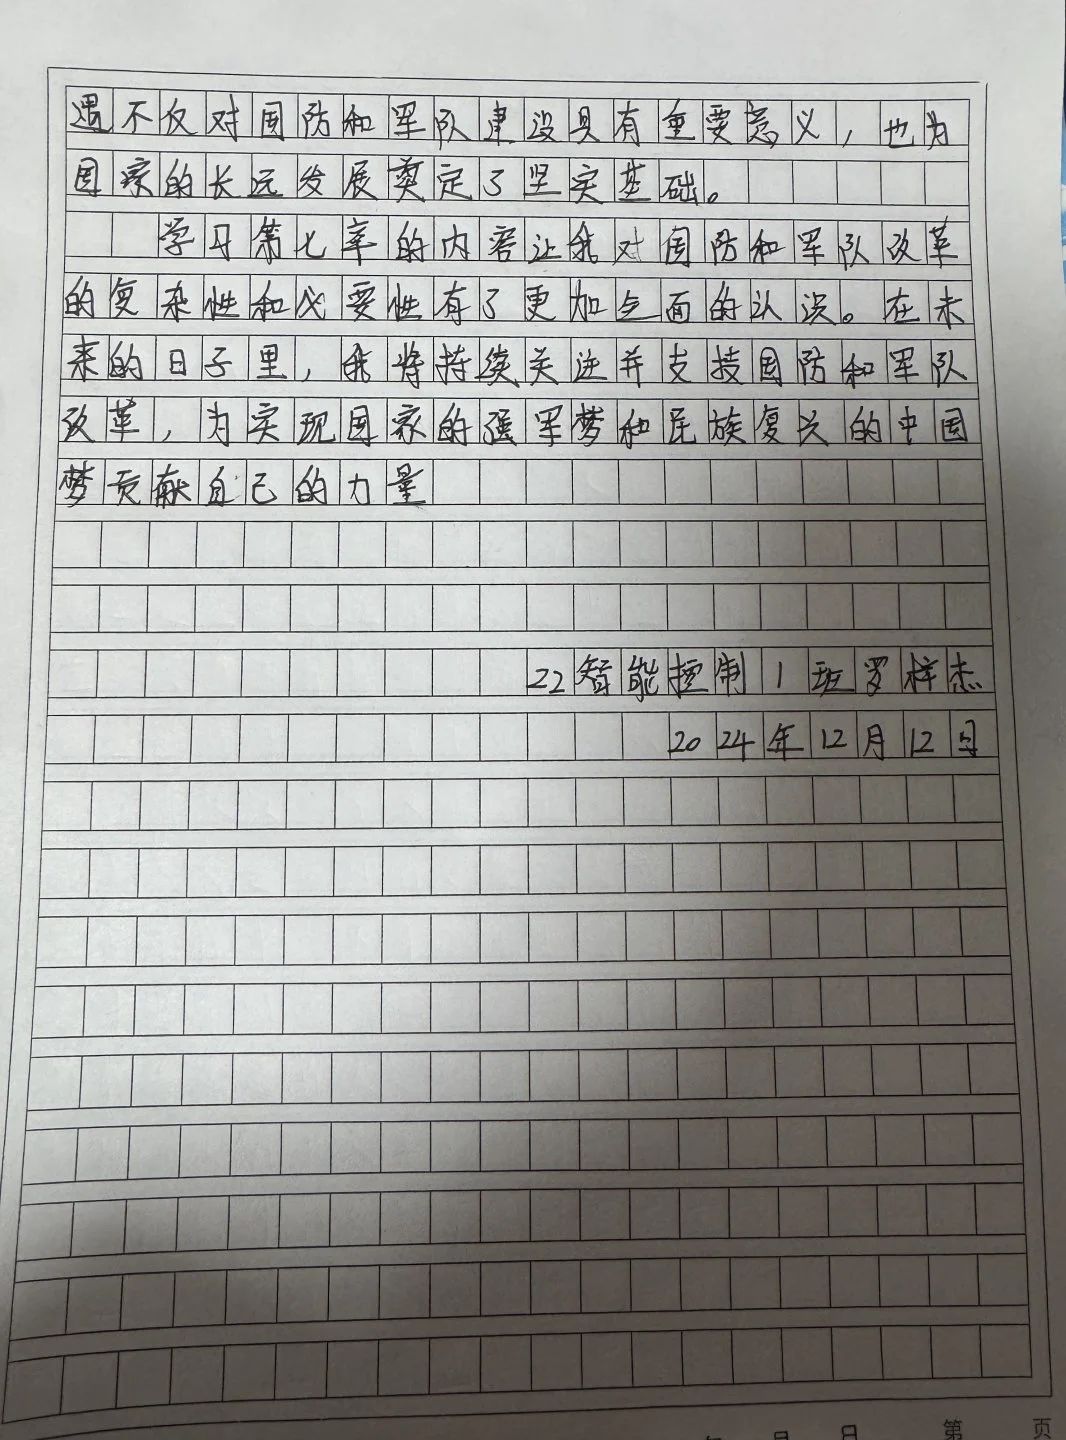 遇不仅对国防和军队建设具有重要意义，也为
国家的长远发展奠定了坚实基础。
学习第七章的内容让我对国防和军队改革
的复杂性和必要性有了更加全面的认识。在未
来的日子里，我将持续关注并支持国防和军队
改革，为实现国家的强军梦和民族复兴的中国
梦贡献自己的力量
22智能控制1班罗梓杰
2024年12月12日
年 月 日 第 页